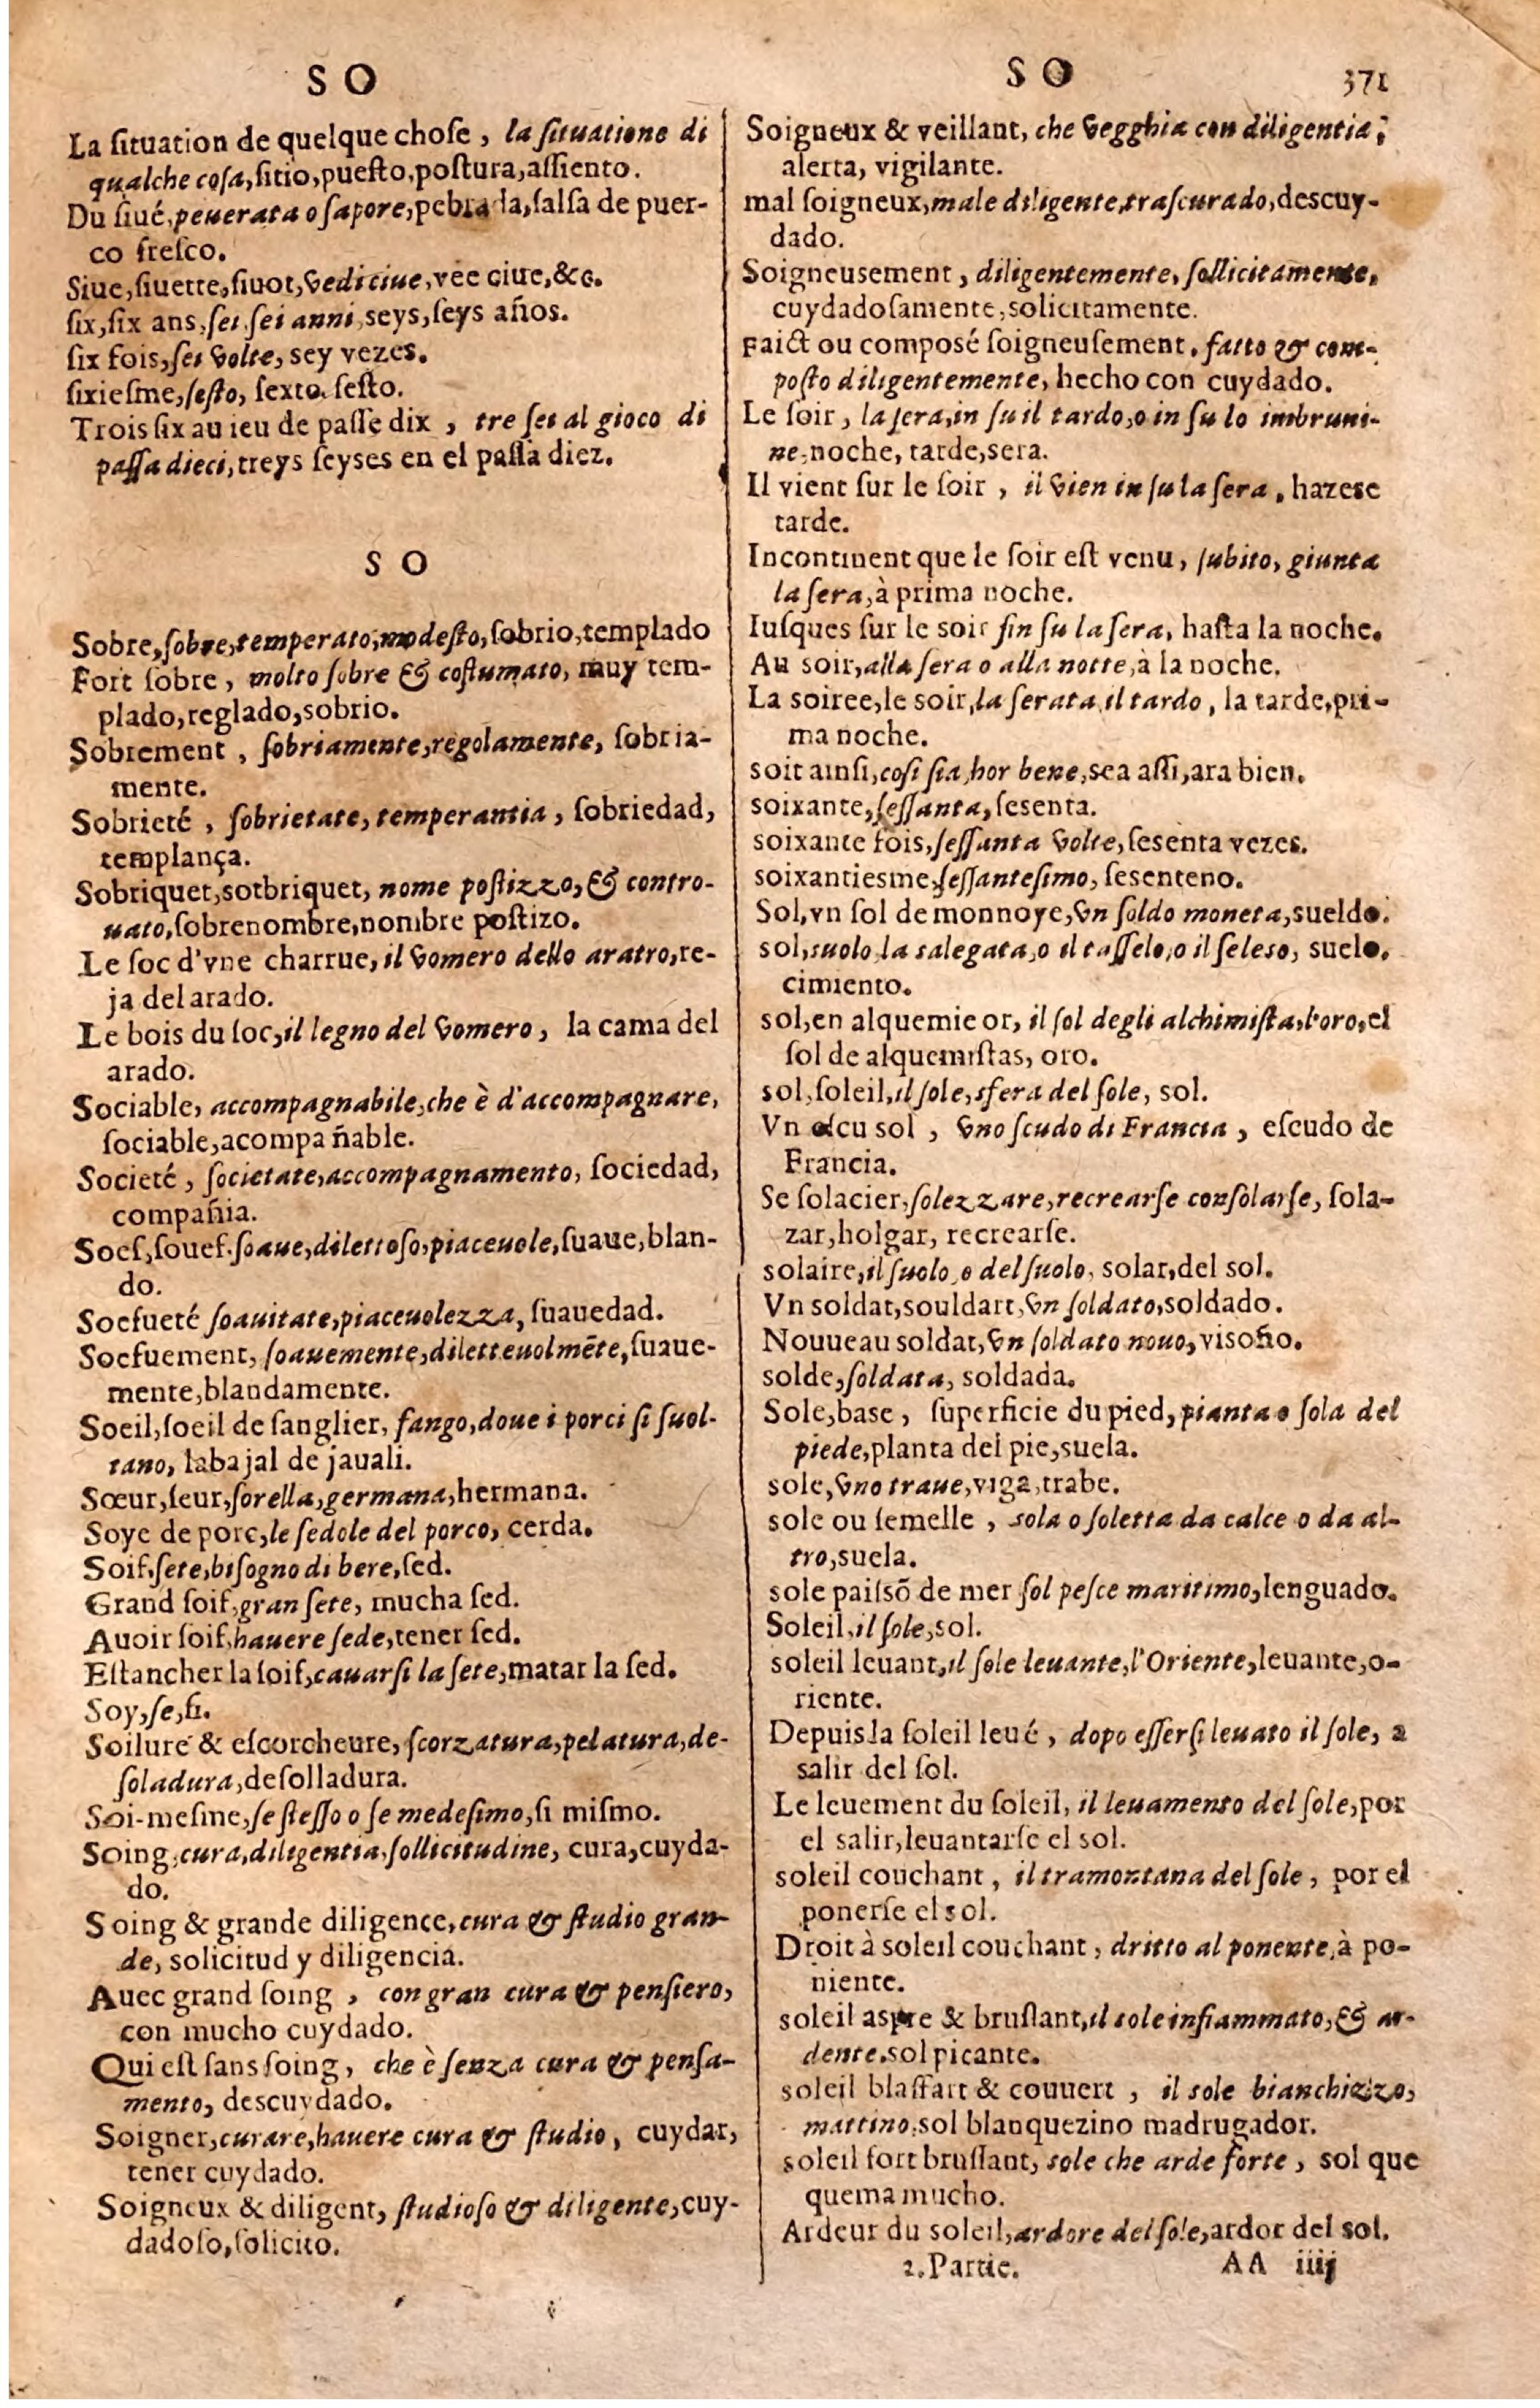 S O
La ſituation de quelque choſe, la ſituatione di
qualche coſa, ſitio, pueſto, poſtura, aſſiento.
Du ſiué, peuerata o ſapore, pebrada, ſalſa de puer-
co freſco.
Siue, ſiuette, ſiuot, vedi ciue, vee ciue, &c.
ſix, ſix ans, ſei. ſei anni, seys, ſeys años.
ſix fois, ſei volte, sey vezes.
ſixieſme, ſeſto, ſexto. ſeſto.
Trois ſix au ieu de paſſe dix, tre ſei al gioco di
paſſa dieci, treys ſeyses en el paſſa diez.
S O
Sobre, ſobre, temperato, modeſto, ſobrio, templado
Fort ſobre, molto ſobre & coſtumato, muy tem-
plado, reglado, sobrio.
Sobrement, ſobriamente, regolamente, ſobria-
mente.
Sobrieté, ſobrietate, temperantia, ſobriedad,
templança.
Sobriquet, sotbriquet, nome poſtizzo, & contro-
uato, ſobrenombre, nombre poſtizo.
Le ſoc d'vne charrue, il vomero dello aratro, re-
ja del arado.
Le bois du ſoc, il legno del vomero, la cama del
arado.
Sociable, accompagnabile, che è d'accompagnare,
ſociable, acompañable.
Societé, ſocietate, accompagnamento, ſociedad,
compañia.
Soef, ſouef. ſoaue, dilettoſo, piaceuole, ſuaue, blan-
do.
Soefueté ſoauitate, piaceuolezza, ſuauedad.
Soefuement, ſoauemente, diletteuolmēte, ſuaue-
mente, blandamente.
Soeil, ſoeil de ſanglier, fango, doue i porci ſi ſuol-
tano, labajal de jauali.
Sœur, ſeur, ſorella, germana, hermana.
Soye de porc, le ſedole del porco, cerda.
Soif, ſete, biſogno di bere, ſed.
Grand ſoif, gran ſete, mucha ſed.
Auoir ſoif, hauere ſede, tener ſed.
Eſtancher la ſoif, cauarſi la ſete, matar la ſed.
Soy, ſe, ſi.
Soilure & eſcorcheure, ſcorzatura, pelatura, de-
ſoladura, deſolladura.
Soi-meſme, ſe ſteſſo o ſe medeſimo, ſi miſmo.
Soing, cura, diligentia, ſollicitudine, cura, cuyda-
do.
Soing & grande diligence, cura & ſtudio gran-
de, solicitud y diligencia.
Auec grand ſoing, con gran cura & penſiero,
con mucho cuydado.
Qui eſt ſans ſoing, che è ſenza cura & penſa-
mento, descuydado.
Soigner, curare, hauere cura & ſtudio, cuydar,
tener cuydado.
Soigneux & diligent, ſtudioſo & diligente, cuy-
dadoſo, ſolicito.
S O 371
Soigneux & veillant, che vegghia con diligentia,
alerta, vigilante.
mal ſoigneux, male diligente, traſcurado, deſcuy-
dado.
Soigneusement, diligentemente, ſollicitamente,
cuydadoſamente, solicitamente.
Faict ou composé ſoigneuſement, fatto & com-
poſto diligentemente, hecho con cuydado.
Le ſoir, la ſera, in ſu il tardo, o in ſu lo imbruni-
ne, noche, tarde, sera.
Il vient ſur le ſoir, il vien in ſu la ſera, hazese
tarde.
Incontinent que le ſoir eſt venu, ſubito, giunta
la ſera, à prima noche.
Iuſques ſur le soir fin ſu la ſera, haſta la noche.
Au soir, alla ſera o alla notte, à la noche.
La soiree, le soir, la ſerata il tardo, la tarde, pri-
ma noche.
soit ainſi, coſi ſia, hor bene, sea aſſi, ara bien.
soixante, ſeſſanta, ſesenta.
soixante fois, ſeſſanta volte, ſesenta vezes.
soixantieſme, ſeſſanteſimo, ſesenteno.
Sol, vn sol de monnoye, vn ſoldo moneta, sueldo.
sol, suolo, la salegata, o il taſſelo, o il ſeleso, suelo.
cimiento.
sol, en alquemie or, il ſol degli alchimiſta, l'oro, el
ſol de alquemiſtas, oro.
sol, soleil, il ſole, sfera del ſole, sol.
Vn eſcu sol, vno ſcudo di Francia, eſcudo de
Francia.
Se solacier, ſolezzare, recrearſe conſolarſe, ſola-
zar, holgar, recrearſe.
solaire, il ſuolo, o del ſuolo, solar, del sol.
Vn soldat, souldart, vn ſoldato, soldado.
Nouueau soldat, vn ſoldato nouo, viſoño.
solde, ſoldata, soldada.
Sole, base, ſuperficie du pied, pianta o ſola del
piede, planta del pie, suela.
sole, vno traue, viga, trabe.
sole ou ſemelle, sola o ſoletta da calce o da al-
tro, suela.
sole paiſsō de mer ſol peſce maritimo, lenguado.
Soleil, il ſole, sol.
soleil leuant, il ſole leuante, l'Oriente, leuante, o-
riente.
Depuis la ſoleil leué, dopo eſſerſi leuato il ſole, a
salir del ſol.
Le leuement du ſoleil, il leuamento del ſole, por
el salir, leuantarſe el sol.
soleil couchant, il tramontana del ſole, por el
ponerſe el sol.
Droit à soleil couchant, dritto al ponente, à po-
niente.
soleil aspre & bruſlant, il sole infiammato, & ar-
dente. sol picante.
soleil blaffart & couuert, il sole bianchizzo,
mattino, sol blanquezino madrugador.
soleil fort bruſlant, sole che arde forte, sol que
quema mucho.
Ardeur du soleil, ardore del ſole, ardor del sol.
2. Partie. AA iiij